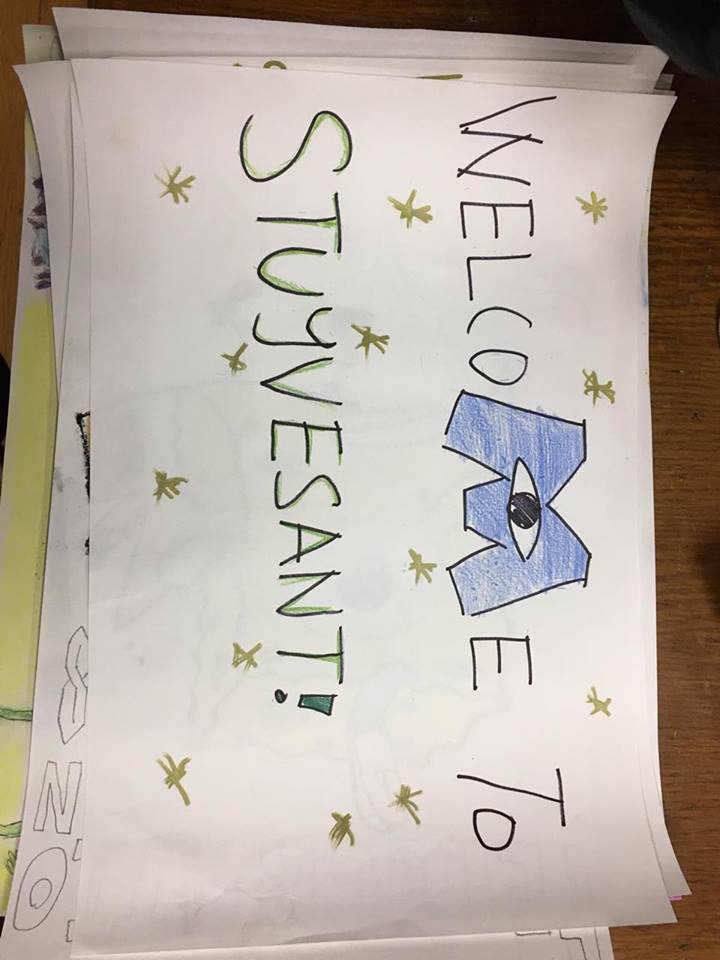 WELCOME TO
STUyVESANT!